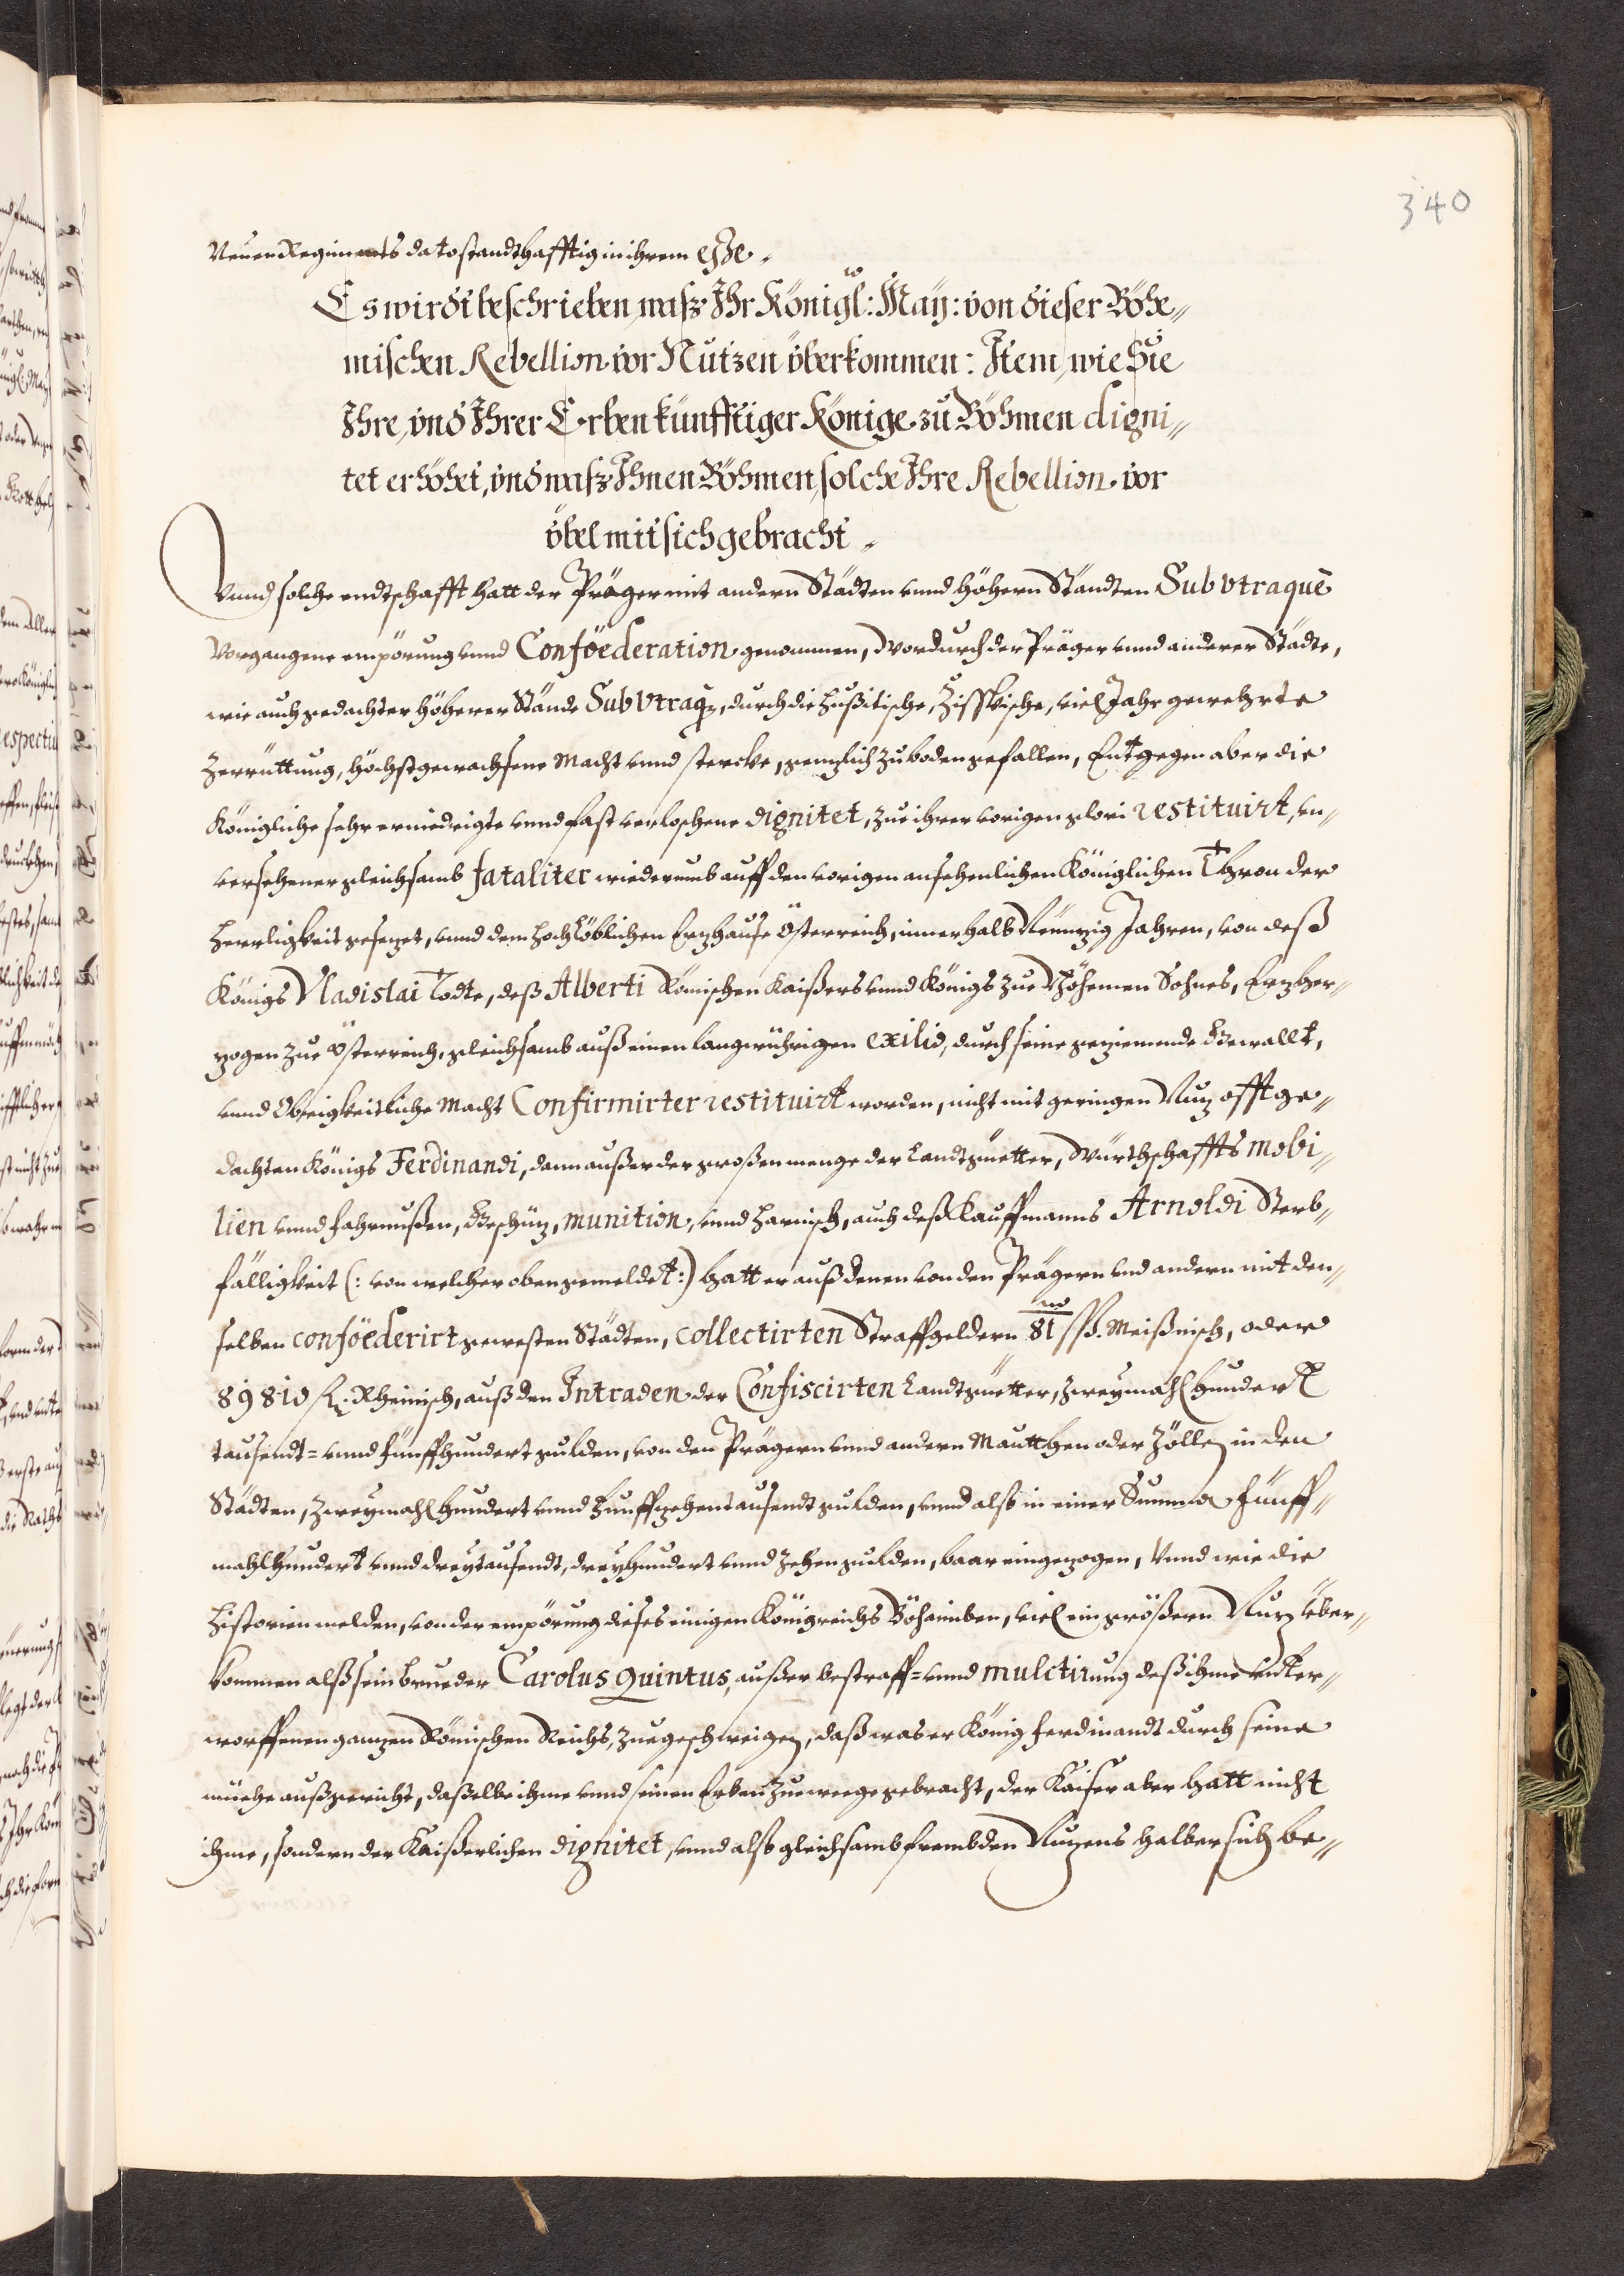 340
Neuen Regiments dato standthafftig in ihrem esse.
Es wirdt beschrieben, waß Ihr Königl: May: von dieser Böhe-
mischen Rebellion vor Nutzen überkommen: Item, wie Sie
Ihre, vnd Ihrer Erben künfftiger Könige zu Böhmen digni-
tet erhöhet, vnd waß Ihnen Böhmen, solche Ihre Rebellion vor
übel mit sich gebracht.
Vnnd solche endtschafft hatt der Präger mit andern Städten vnnd höhern Ständten Sub vtraque
vorgangene empörung vnnd Conföederation genommen, Wordurch der Präger vnnd anderer Städte,
wie auch gedachter höherer Stände Sub vtraq;, durch die Hußitische, Zisskische, viel Jahr gewehrte
Zerrüttung, höchstgewachsene Macht vnnd stercke, genzlich zu boden gefallen, Entgegen aber die
Königliche sehr erniedrigte vnnd fast verloschene dignitet, zue ihrer vorigen glori restituirt, vn-
versehener gleichsamb fataliter wiederumb auff den vorigen ansehenlichen Königlichen Thron der
Herrligkeit gesezet, vnnd dem hochlöblichen Erzhause Österreich, innerhalb Neunzig Jahren, von deß
Königs Vladislai Todte, deß Alberti Römischen Kaißers vnnd Königs zue Böhemen Sohnes, Erzher-
zogen zue Österreich, gleichsamb auß einen langwührigen exilio, durch seine geziemende Gewallt,
vnnd Obrigkeitliche Macht Confirmirter restituirt worden, nicht mit geringen Nuz offtge-
dachten Königs Ferdinandi, dann außer der großen menge der Landtgüetter, Würthschaffts mobi-
lien vnnd fahrnußen, Geschüz, munition, vnnd Harnisch, auch deß Kauffmanns Arnoldi Sterb-
fälligkeit (: von welcher oben gemeldet:) hatt er auß denen von den Prägern vnd andern mit den-
selben conföederirt gewesten Städten, collectirten Straffgeldern 81 ß. Meißnisch, oder
89810 fl. Rheinisch, auß den Intraden der Confiscirten Landtgüetter, zweymahl hundert
tausendt= vnnd fünffhundert gulden, von den Prägern vnnd andern Mautthen oder Zöllen in den
Städten, zweymahl hundert vnnd Fünffzehen tausendt gulden, vnnd also in einer Summa Fünff-
mahlhundert vnnd dreytausendt, dreyhundert vnnd zehen gulden, baar eingezogen, Vnnd wie die
Historien melden, von der empörung dieses einigen Königreichs Böhaimben, viel ein größern Nuz über-
kommen alß sein brueder Carolus Quintus, außer bestraff= vnnd mulctirung deß ihme vnter-
worffenen ganzen Römischen Reichs, zuegeschweigen, daß was er König Ferdinandt durch seine
müehe außgericht, daßelbe ihme vnnd seinen Erben zuewege gebracht, der Kaiser aber hatt nicht
ihme, sondern der Kaißerlichen dignitet, vnnd also gleichsamb frembden Nuzens halber sich be-